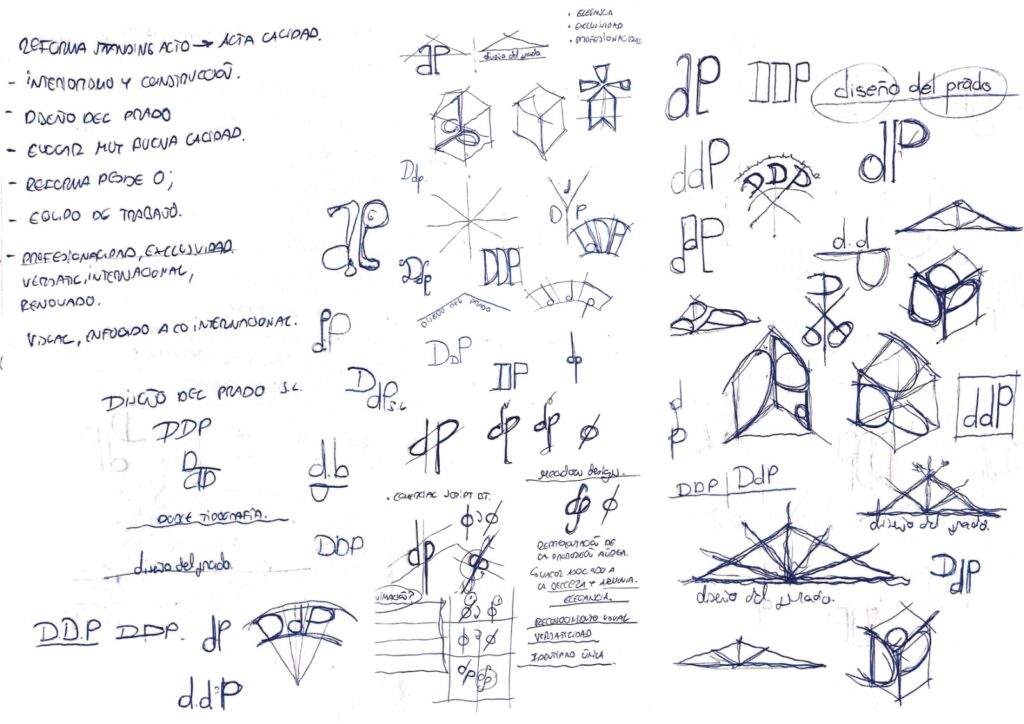 REFORMA STANDING ALTO → ALTA CALIDAD.
- INTERIORISMO Y CONSTRUCCIÓN.
- DISEÑO DEL PRADO
- BUENA CALIDAD.
- REFORMA DESDE 0;
- EQUIPO DE TRABAJO.
- PROFESIONALIDAD, EXCLUSIVIDAD
VERSATIL, INTERNACIONAL,
RENOVADO.
VISUAL, ENFOCADO A LO INTERNACIONAL.
DISEÑO DEL PRADO S.L.
DDP
D
dD
d.b
DOBLE TIPOGRAFÍA.
diseño del prado
DDP
D.D.P
DDP.
dP
DdP
d.d.P
· ELEGANCIA
· EXCLUSIVIDAD
· PROFESIONALIDAD
dP
diseño del prado
Ddp
D d P
dDP
dP
Ddp
DDP
DISEÑO DEL PRADO
d d p
dP
DdP
DP
dp
D
dP S.L
dP
dp
dp
ϕ
meadow design.
· COMERCIAL SCRIPT BT.
ϕ
REPRESENTACIÓN DE
LA PROPORCIÓN AÚREA.
ASOCIADO A
LA BELLEZA Y ARMONIA.
ELEGANCIA.
RECONOCIMIENTO VISUAL
VERSATILIDAD
IDENTIDAD ÚNICA
dP
DDP
diseño del prado
ddP
DDD
dP
dP
d.d
d
p
ddP
DDP | DdP
diseño del prado.
diseño del prado.
DdP